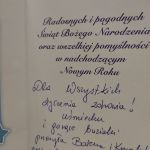 Radosnych i pogodnych
Świąt Bożego Narodzenia
oraz wszelkiej pomyślności
w nadchodzącym
Nowym Roku
Dla Wszystkich
życzenia zdrowia!
uśmiechu
i gorące buziaki
przesyła